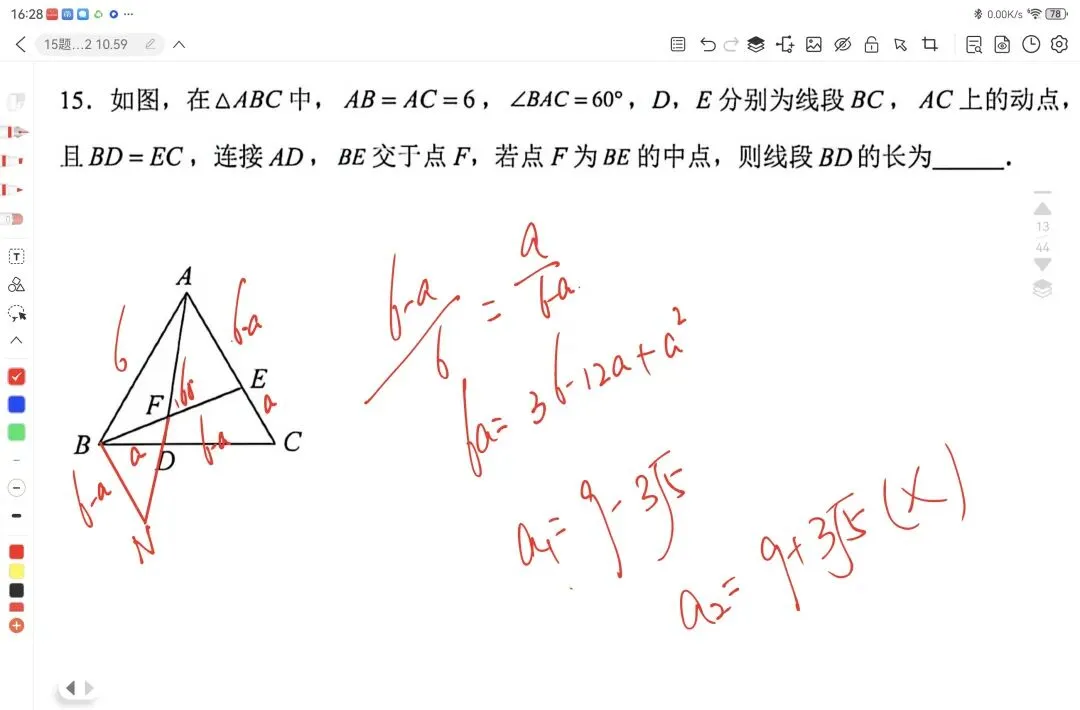 16:28 ··· 0.00K/s 78
15题...2 10.59
15．如图，在△ABC 中， AB = AC = 6 ，∠BAC = 60°，D，E 分别为线段 BC ， AC 上的动点，
且 BD = EC ，连接 AD ， BE 交于点 F，若点 F 为 BE 的中点，则线段 BD 的长为______．
13
44
T
A
6
6-a
E
F
a
B
a
6-a
C
D
6-a
N
6-a/6 = a/6-a
6a=36-12a+a²
a₁=9-3√5
a₂=9+3√5(×)